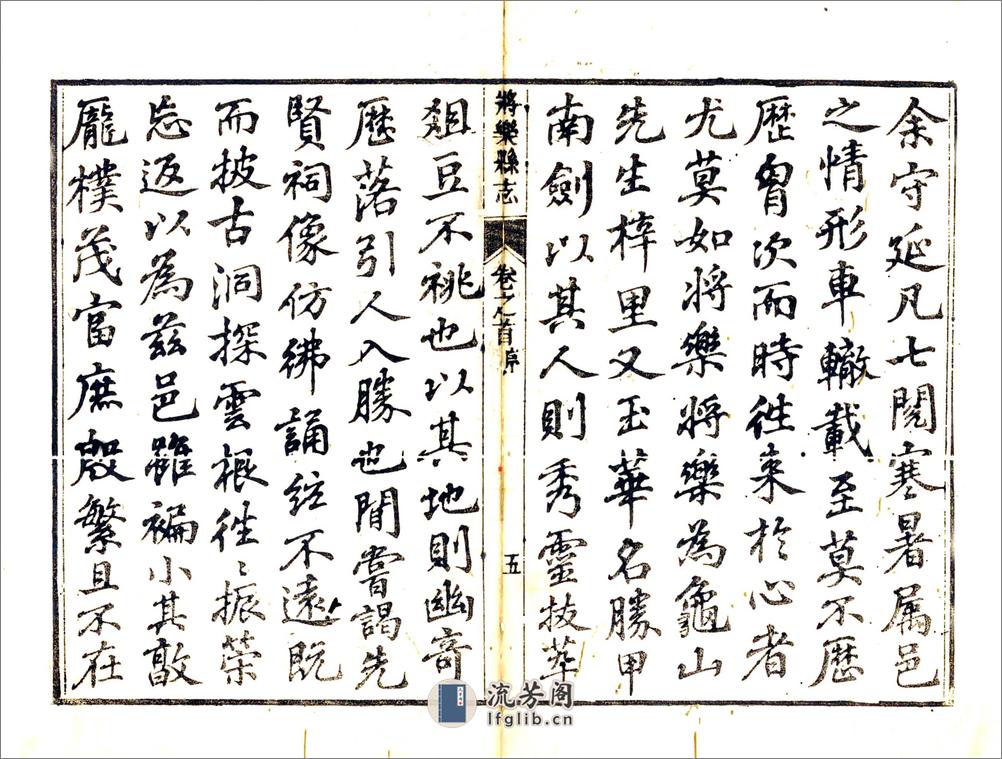 余守延凡七閱寒暑属邑
之情形車轍載至莫不歷
歷胷次而時徃来於心者
尤莫如将樂将樂為龜山
先生梓里又玉華名勝甲
南劍以其人則秀靈拔萃
將樂縣志
卷之首序
五
俎豆不祧也以其地則幽奇
歷落引人入勝也閒嘗謁先
賢祠像仿彿誦絃不遠既
而披古洞探雲根徃〻振榮
忘返以為兹邑雖褊小其敦
龐樸茂富庶殷繁且不在
流芳阁
lfglib.cn